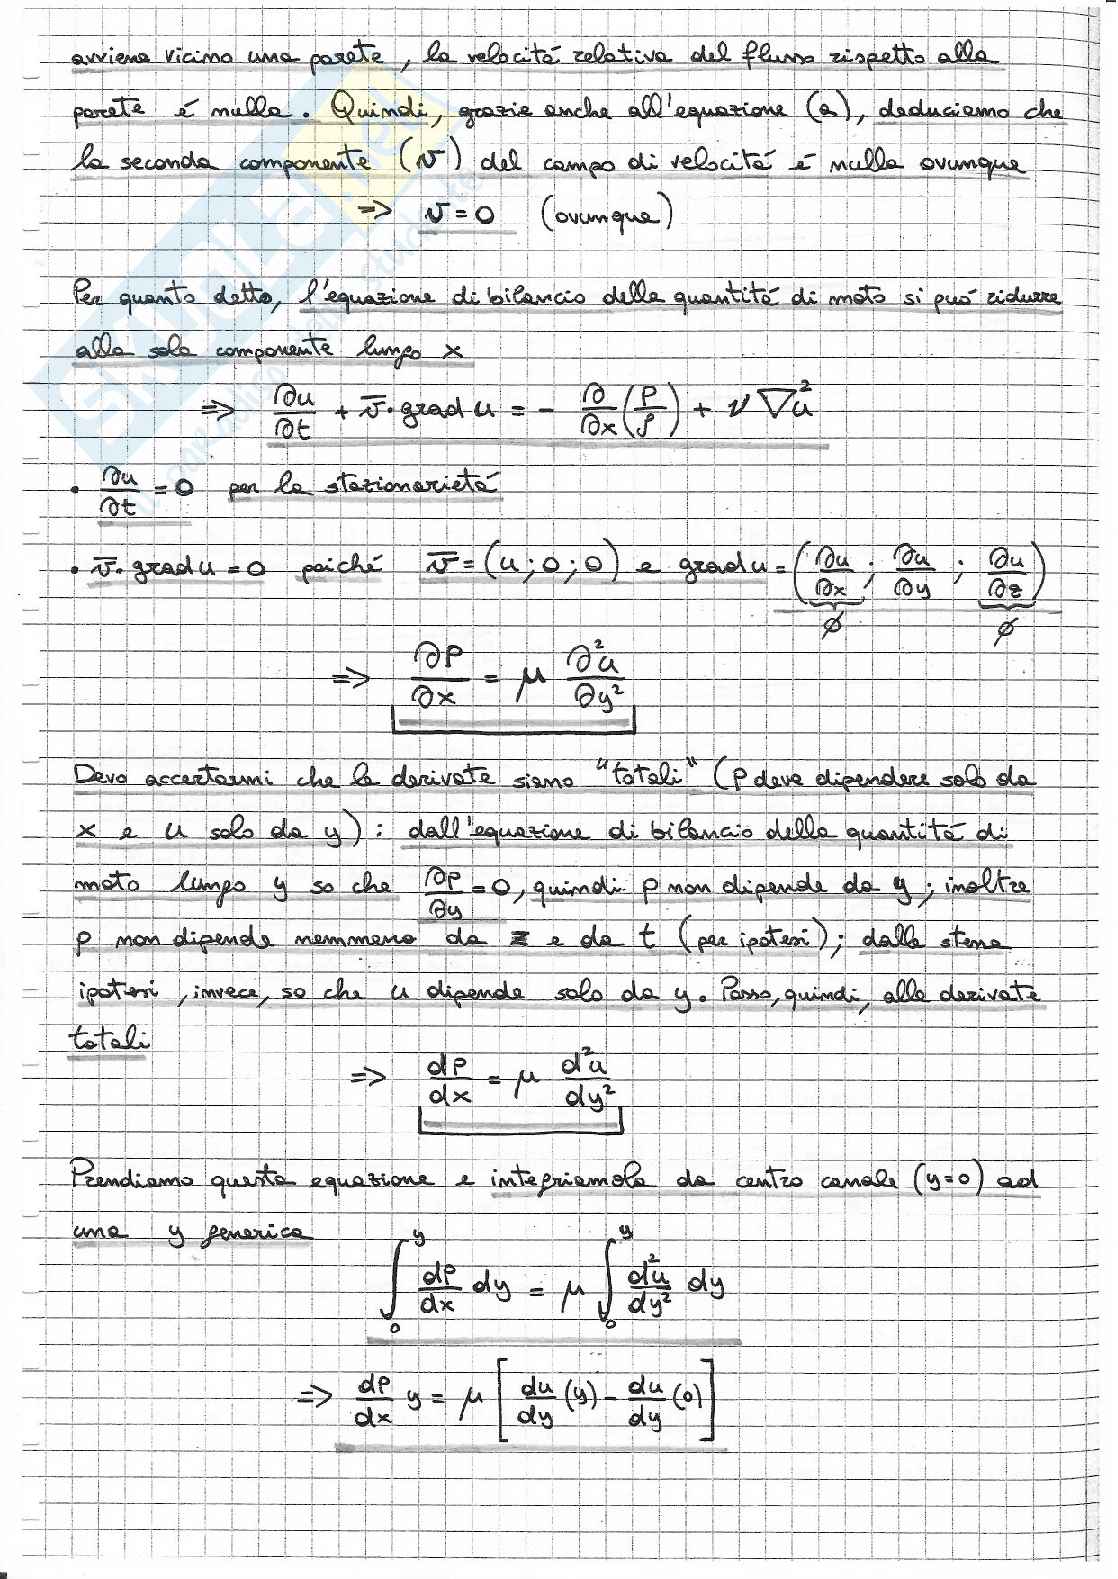 avviene vicino una parete, la velocità relativa del flusso rispetto alla
parete é nulla. Quindi, grazie anche all'equazione (a), deduciamo che
la seconda componente (v) del campo di velocità é nulla ovunque
=> v = 0 (ovunque)
Per quanto detto, l'equazione di bilancio della quantità di moto si può ridurre
alla sola componente lungo x
=> ∂u/∂t + v̅·grad u = - ∂/∂x (p/ρ) + ν ∇²u
• ∂u/∂t = 0 per la stazionarietà
• v̅·grad u = 0 poiché v̅ = (u; 0; 0) e grad u = (∂u/∂x; ∂u/∂y; ∂u/∂z)
∅ ∅
=> ∂p/∂x = μ ∂²u/∂y²
Devo accertarmi che le derivate siano "totali" (p deve dipendere solo da
x e u solo da y): dall'equazione di bilancio della quantità di
moto lungo y so che ∂p/∂y = 0, quindi p non dipende da y; inoltre
p non dipende nemmeno da z e da t (per ipotesi); dalla stessa
ipotesi, invece, so che u dipende solo da y. Passo, quindi, alle derivate
totali
=> dp/dx = μ d²u/dy²
Prendiamo questa equazione e integriamola da centro canale (y=0) ad
una y generica
∫₀^y dp/dx dy = μ ∫₀^y d²u/dy² dy
=> dp/dx y = μ [du/dy (y) - du/dy (0)]